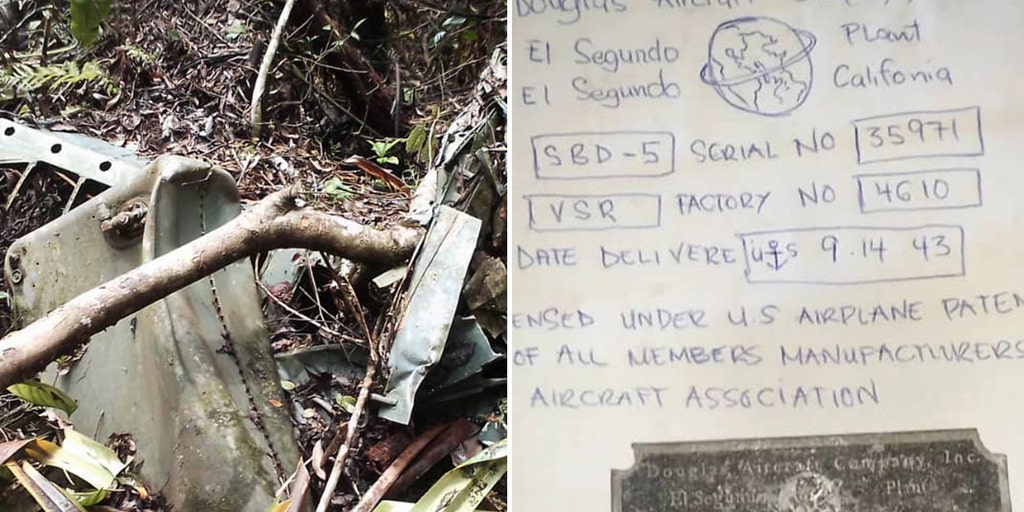 Douglas Aircraft
El Segundo Plant
El Segundo Califonia
SBD-5 SERIAL NO 35971
VSR FACTORY NO 4610
DATE DELIVERE U⚓S 9.14 43
ENSED UNDER U.S AIRPLANE PATEN
OF ALL MEMBERS MANUFACTURERS
AIRCRAFT ASSOCIATION
Douglas Aircraft Company, Inc.
El Segundo Plant